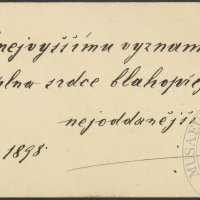 nejvyššímu vyznam
plna srdce blahopře
nejoddanější
1898.
MUSAE